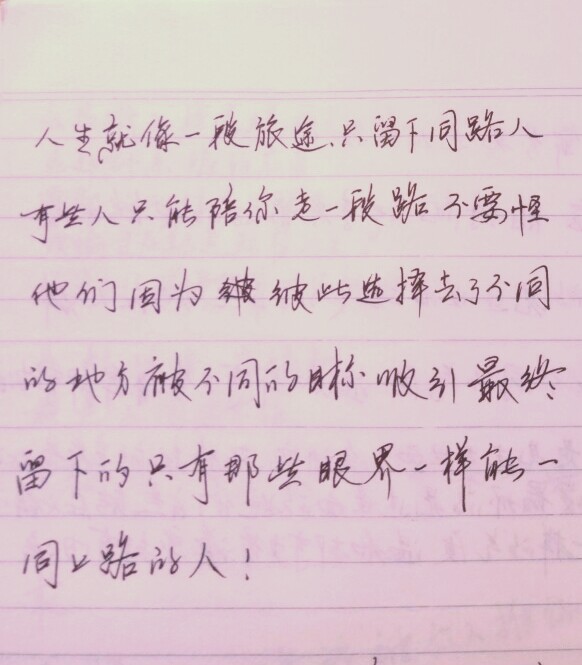 人生就像一段旅途、只留下同路人
有些人只能陪你走一段路不要怪
他们因为彼此选择去了不同
的地方被不同的目标吸引最终
留下的只有那些眼界一样能一
同上路的人！